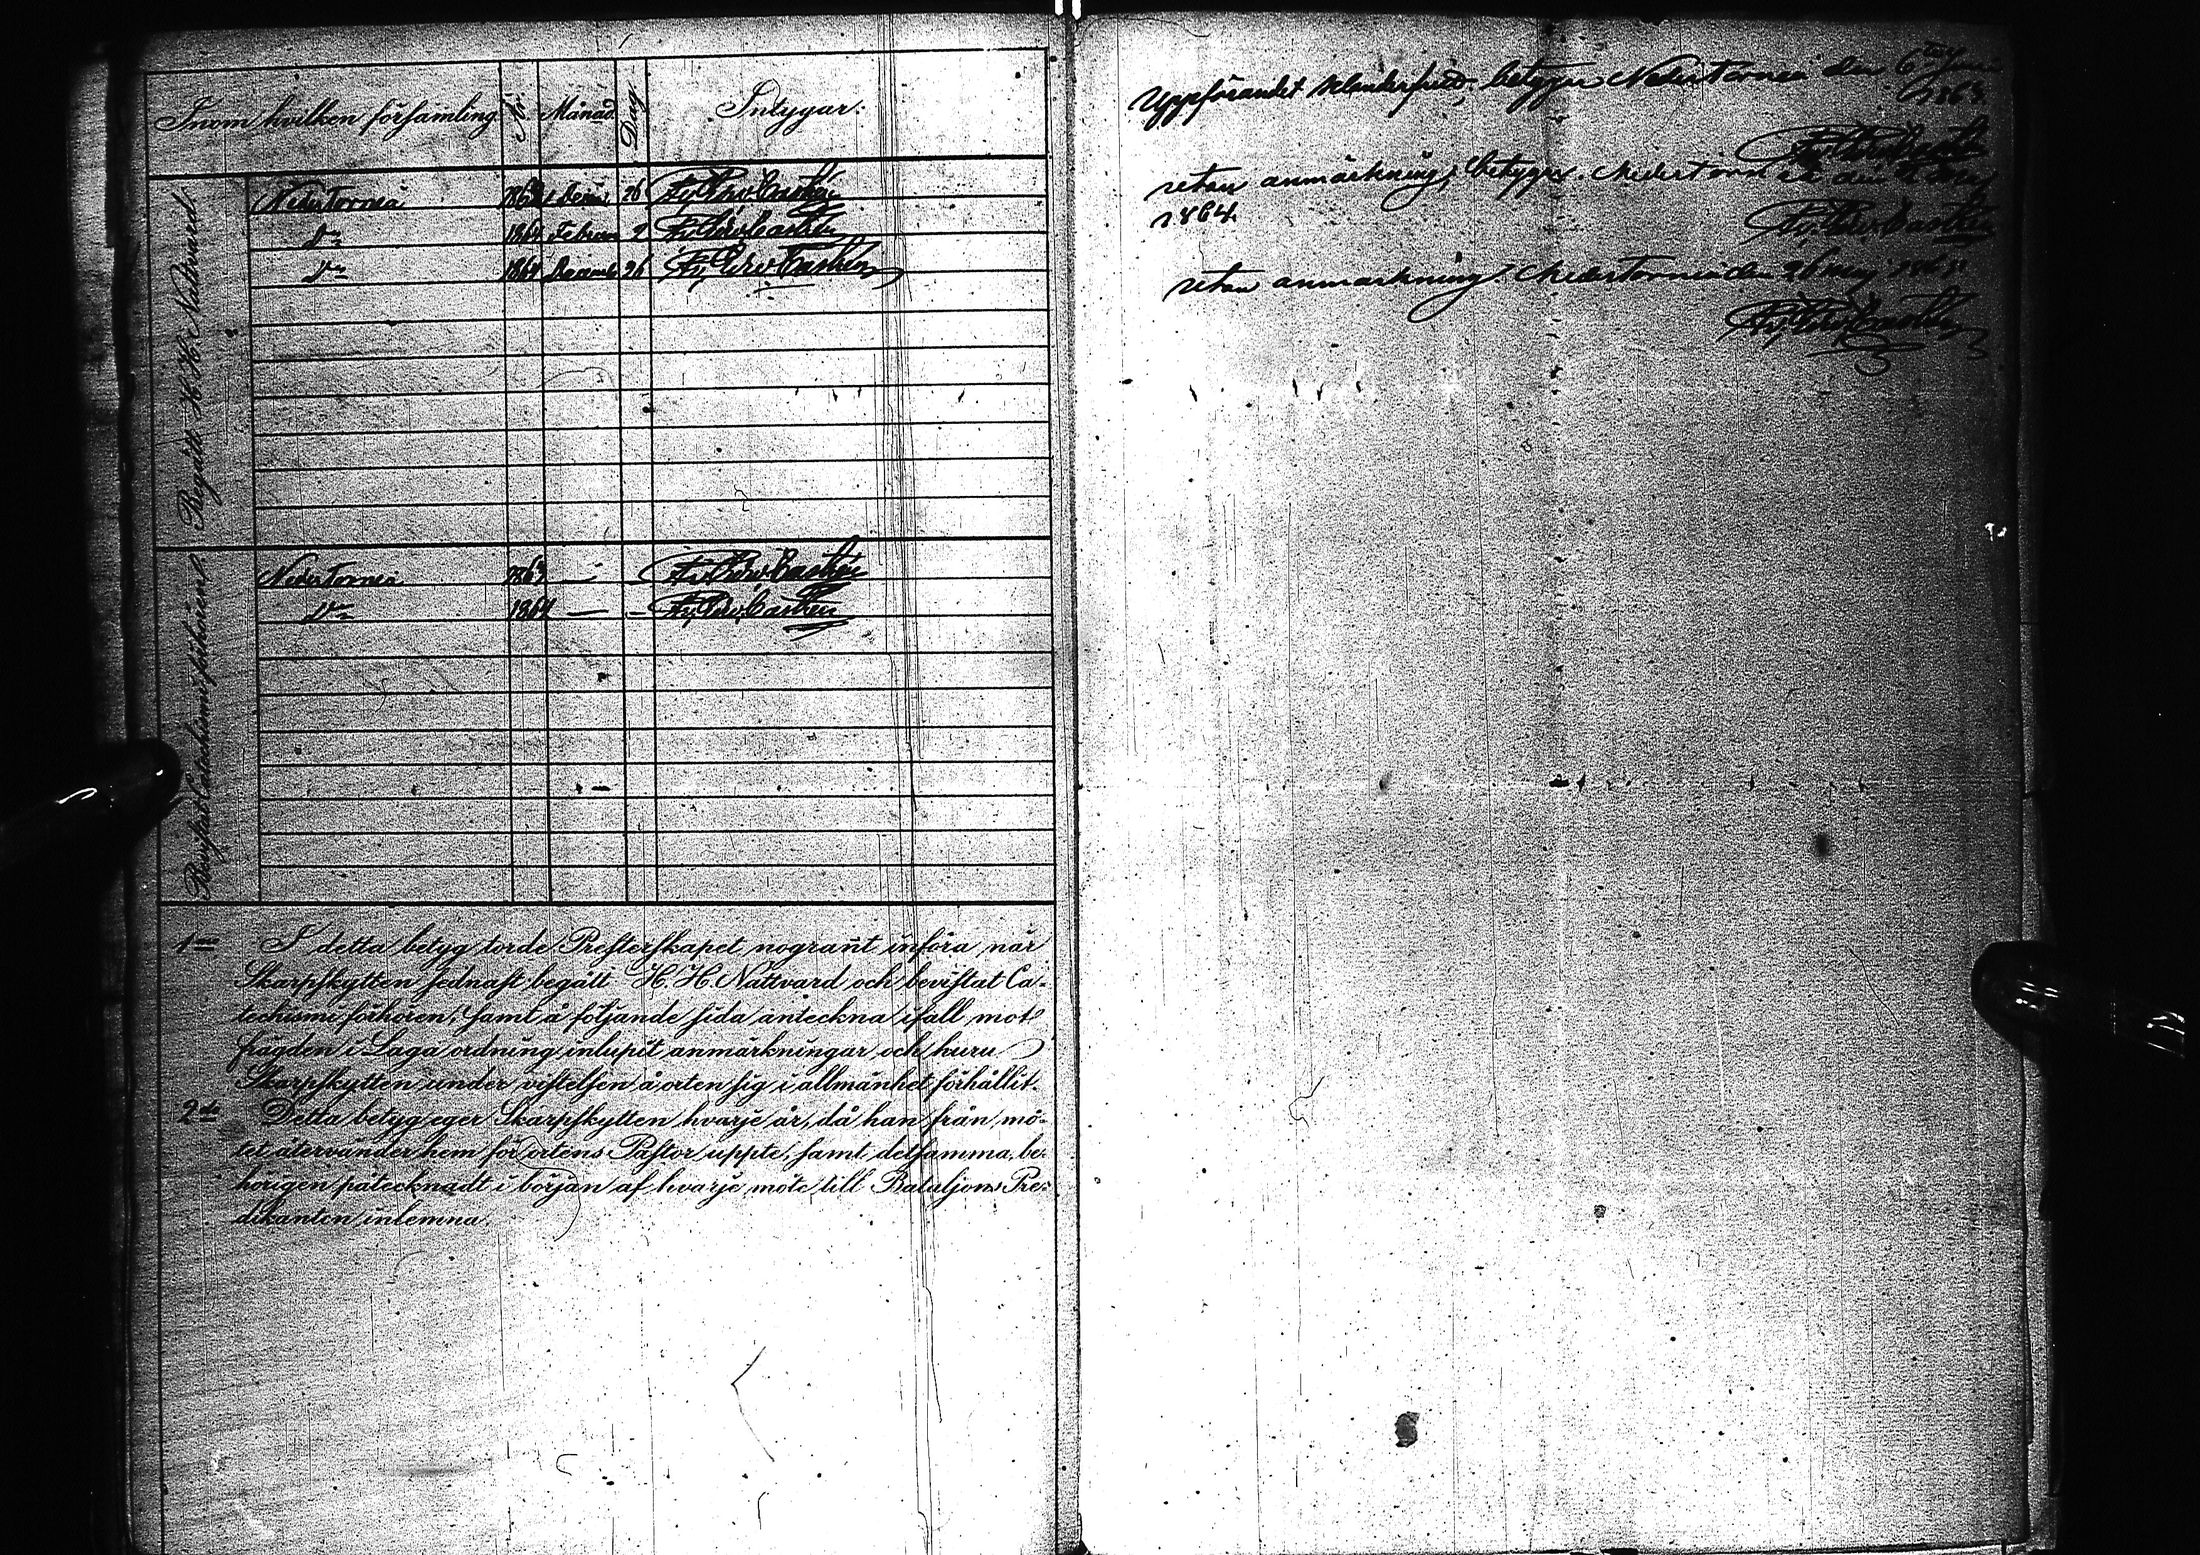 Inom hvilken församling. År. Månad. Dag. Intygar.
Begått H. H. Nattvard.
NederTorneå 1863 Decem 26 Fr. Edv. Castrén
Do 1864 Febru 2 Fr. Edv. Castrén
Do 1864 Decemb 26 Fr. Edv. Castrén
Bevistat Catechismi förhören
NederTorneå 1863 — — Fr. Edv. Castrén
Do 1864 — — Fr. Edv. Castrén
1mo I detta betyg torde Presterskapet nogrant införa när
Skarpskytten sednast begått H. H. Nattvard och bevistat Ca-
techismi förhören, samt å följande sida anteckna ifall mot
frägden i Laga ordning inlupit anmärkningar och huru
Skarpskytten under vistelsen å orten sig i allmänhet förhållit.
2do Detta betyg eger Skarpskytten hvarje år, då han från mö-
tet återvänder hem för ortens Pastor uppte, samt detsamma, be-
hörigen påtecknadt i början af hvarje möte till Bataljons Pre-
dikanten inlemna.
Uppförandet klanderfritt, betygar NederTorneå den 6te
1863.
Fr. Edv. Castrén
utan anmärkning, betygar. NederTorneå den May
1864.
Fr. Edv. Castrén
utan anmärkning. NederTorneå den 26 May 1865.
Fr. Edv. Castrén